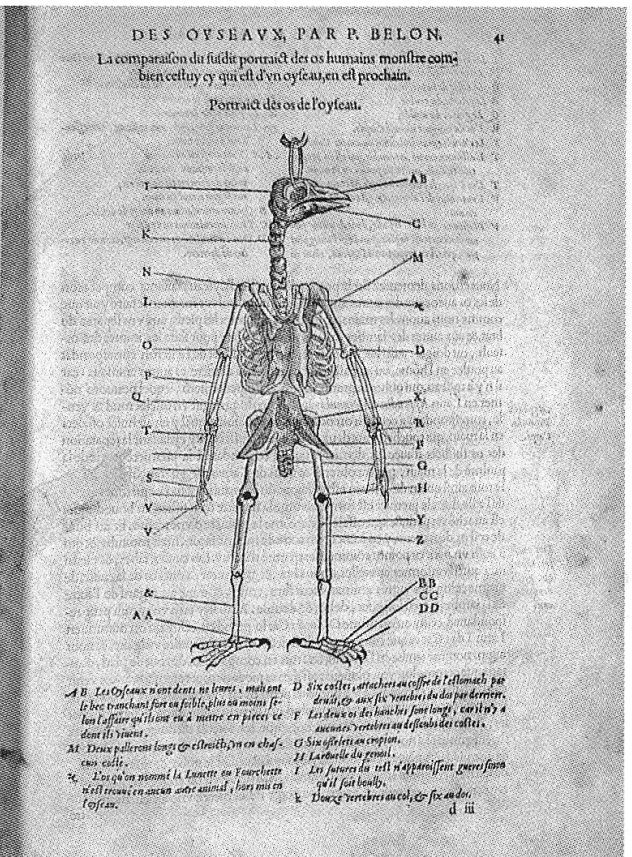 DES OYSEAVX, PAR P. BELON. 41
La comparaiſon du ſuſdit portraict des os humains monſtre com-
bien ceſtuy cy qui eſt d'vn oyſeau, en eſt prochain.
Portraict des os de l'oyſeau.
I AB
K C
M
N
L
O D
P
Q X
R
T F
G
S H
V Y
V Z
& BB
CC
AA DD
AB Les Oyſeaux n'ont dents ne leures, mais ont
le bec tranchant fort ou foible, plus ou moins ſe-
lon l'affaire qu'ils ont eu à mettre en pieces ce
dont ils viuent.
M Deux pallerons longs & eſtroicts, vn en chaſ-
cun coſté.
L'os qu'on nommé la Lunette ou Fourchette
n'eſt trouué en aucun autre animal, hors mis en
l'oyſeau.
D Six coſtes, attachees au coffre de l'eſtomach par
deuāt, & aux ſix vertebres du dos par derriere.
F Les deux os des hanches ſont longs, car il n'y a
aucunes vertebres au deſſoubs des coſtes.
G Six oſſelets au cropion.
H La rouelle du genoil.
I Les ſutures du teſt n'apparoiſſent gueres ſinon
qu'il ſoit boully.
k Douze vertebres au col, & ſix au dos.
d iii